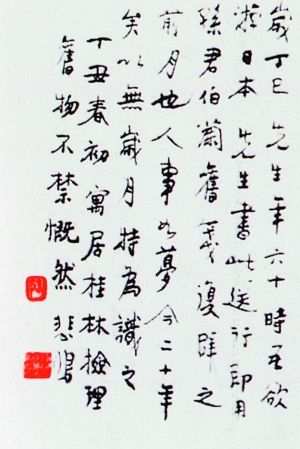 歲丁巳 先生年六十時吾欲
游日本 先生書此送行即用
孫君伯蘭舊箋復辟之
前月也人事如夢今二十年
矣以無歲月特為識之
丁丑春初寓居桂林撿理
舊物不禁慨然 悲鴻